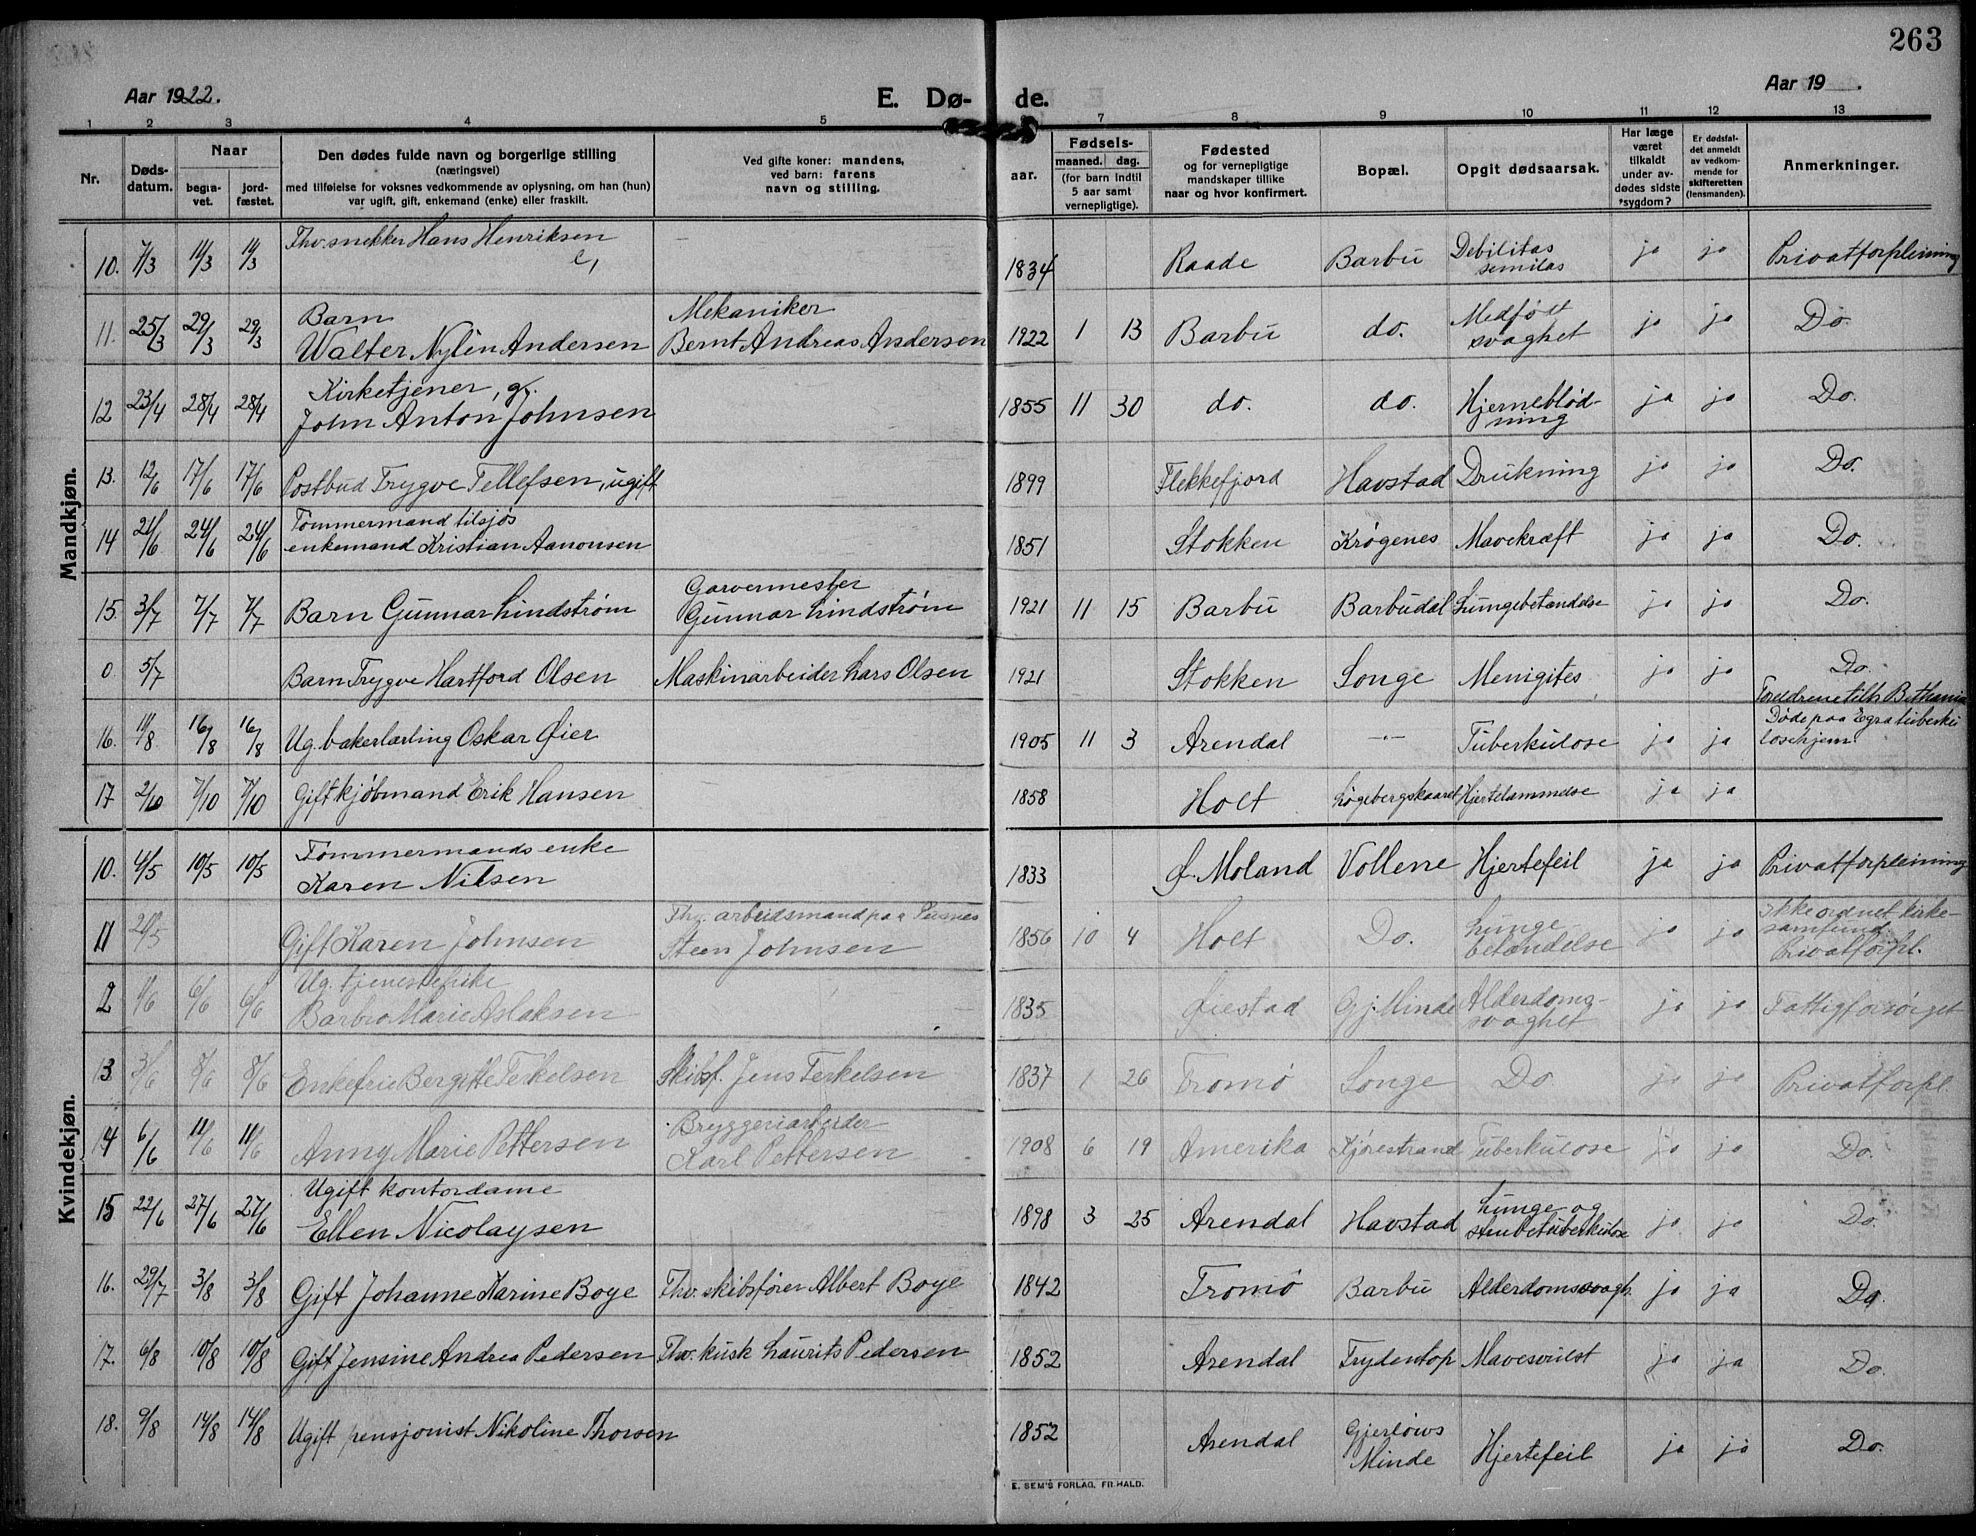 263
Aar 1922.
E. Dø- de.
Aar 19 .
1 2 3 4 5 7 8 9 10 11 12 13
Nr.
Døds-
datum.
Naar
begra-
vet.
jord-
fæstet.
Den dødes fulde navn og borgerlige stilling
(næringsvei)
med tilføielse for voksnes vedkommende av oplysning, om han (hun)
var ugift, gift, enkemand (enke) eller fraskilt.
Ved gifte koner: mandens,
ved barn: farens
navn og stilling.
aar.
Fødsels-
maaned. dag.
(for barn indtil
5 aar samt
vernepligtige).
Fødested
og for vernepligtige
mandskaper tillike
naar og hvor konfirmert.
Bopæl.
Opgit dødsaarsak.
Har læge
været
tilkaldt
under av-
dødes sidste
*sygdom?
Er dødsfal-
det anmeldt
av vedkom-
mende for
skifteretten
(lensmanden).
Anmerkninger.
Mandkjøn.
10. 7/3 11/3 11/3 Fhv. snekker Hans Henriksen
e, – 1834 Raade Barbu Debilitas
senilas ja ja Privatforpleining
11. 25/3 29/3 29/3 Barn
Walter Nylin Andersen Mekaniker
Bernt Andreas Andersen 1922 1 13 Barbu do. Medfødt
svaghet ja ja Do.
12 23/4 28/4 28/4 Kirketjener, g.
John Anton Johnsen 1855 11 30 do. do. Hjerneblød-
ning ja ja Do.
13. 12/6 17/6 17/6 Postbud Trygve Tellefsen, ugift 1899 Flekkefjord Havstad Drukning ja ja Do.
14 21/6 24/6 24/6 Tømmermand tilsjøs
enkemand Kristian Aanonsen 1851 Stokken Krøgenes Mavekræft ja ja Do.
15. 3/7 7/7 7/7 Barn Gunnar Lindstrøm Garvermester
Gunnar Lindstrøm 1921 11 15 Barbu Barbudal Lungebetændelse ja ja Do.
0 5/7 Barn Trygve Hartford Olsen Maskinarbeider Lars Olsen 1921 Stokken Songe Menigites ja ja Do.
Foreldrene tilh. Bethania
16. 11/8 16/8 16/8 Ug. bakerlærling Oskar Øier 1905 11 3 Arendal –"– Tuberkulose ja ja Døde paa Egra tuberku
losehjem.
17 2/10 7/10 7/10 Gift kjøbmand Erik Hansen 1858 Holt Løgebergskaaret Hjertelammelse ja ja
Kvindekjøn.
10. 4/5 10/5 10/5 Tømmermands enke
Karen Nilsen 1833 Ø. Moland Vollene Hjertefeil ja ja Privatforpleining
11 Gift Karen Johnsen Fhv. arbeidsmand paa Pusnes
Steen Johnsen 1856 10 4 Holt Do. Lunge-
betændelse ja ja Ikke ordnet kirke-
samfund.
Privatforpl.
2 1/6 6/6 6/6 Ug. tjenestefrike
Barbro Marie Aslaksen 1835 Øiestad Gj. Minde Alderdoms-
svaghet ja ja Fattigforsørget
13 3/6 8/6 8/6 Enkefrue Bergitte Terkelsen Skibsf. Jens Terkelsen 1837 1 26 Tromø Songe Do ja ja Privatforpl.
14 6/6 11/6 11/6 Anny Marie Pettersen Bryggeriarbeider
Karl Pettersen 1908 6 19 Amerika Kjørestrand Tuberkulose ja ja Do.
15 22/6 27/6 27/6 Ugift kontordame
Ellen Nicolaysen 1898 3 25 Arendal Havstad Lunge og
strubetuberkulose ja ja Do.
16. 29/7 3/8 3/8 Gift Johanne Karine Boye Fhv. skibsfører Albert Boye 1842 Tromø Barbu Alderdomssvagh. ja ja Do.
17. 6/8 10/8 10/8 Gift Jensine Andrea Pedersen Fhv. kusk Laurits Pedersen 1852 Arendal Frydentop Mavesvulst ja ja Do.
18. 9/8 14/8 14/8 Ugift pensjonist Nikoline Thorsen 1852 Arendal Gjerløws
Minde Hjertefeil ja ja Do.
E. SEM'S FORLAG, FR.HALD.